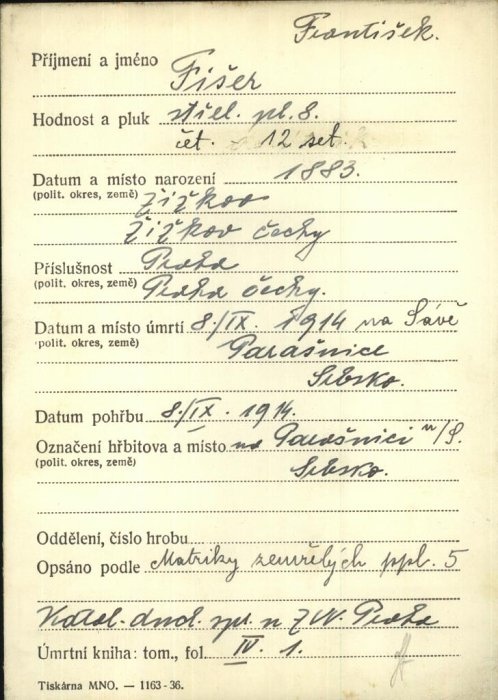 František.
Příjmení a jméno Fišer
Hodnost a pluk střel. pl. 8.
čet. 12 set.
Datum a místo narození 1883.
(polit. okres, země) Žižkov
Žižkov čechy
Příslušnost Praha
(polit. okres, země) Praha čechy.
Datum a místo úmrtí 8./IX. 1914 na Sávě
polit. okres, země) Parašnice
Srbsko.
Datum pohřbu 8./IX. 1914.
Označení hřbitova a místo na Parašnici n/S.
(polit. okres, země) Srbsko.
Oddělení, číslo hrobu
Opsáno podle Matriky zemřelých ppl. 5
Katol. duch. spr. n ZVV. Praha
Úmrtní kniha: tom., fol. IV. 1.
Tiskárna MNO. — 1163-36.